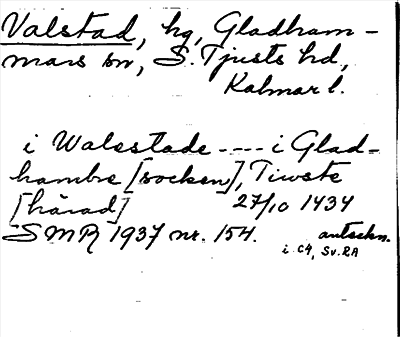 Valstad, hg, Gladham-
mars sn, S. Tjusts hd,
Kalmar l.
i Walsstade ---- i Glad-
hambre [socken], Tiwste
[härad] 27/10 1434
SMR 1937 nr. 154. avtsckn.
i C4, Sv. RA